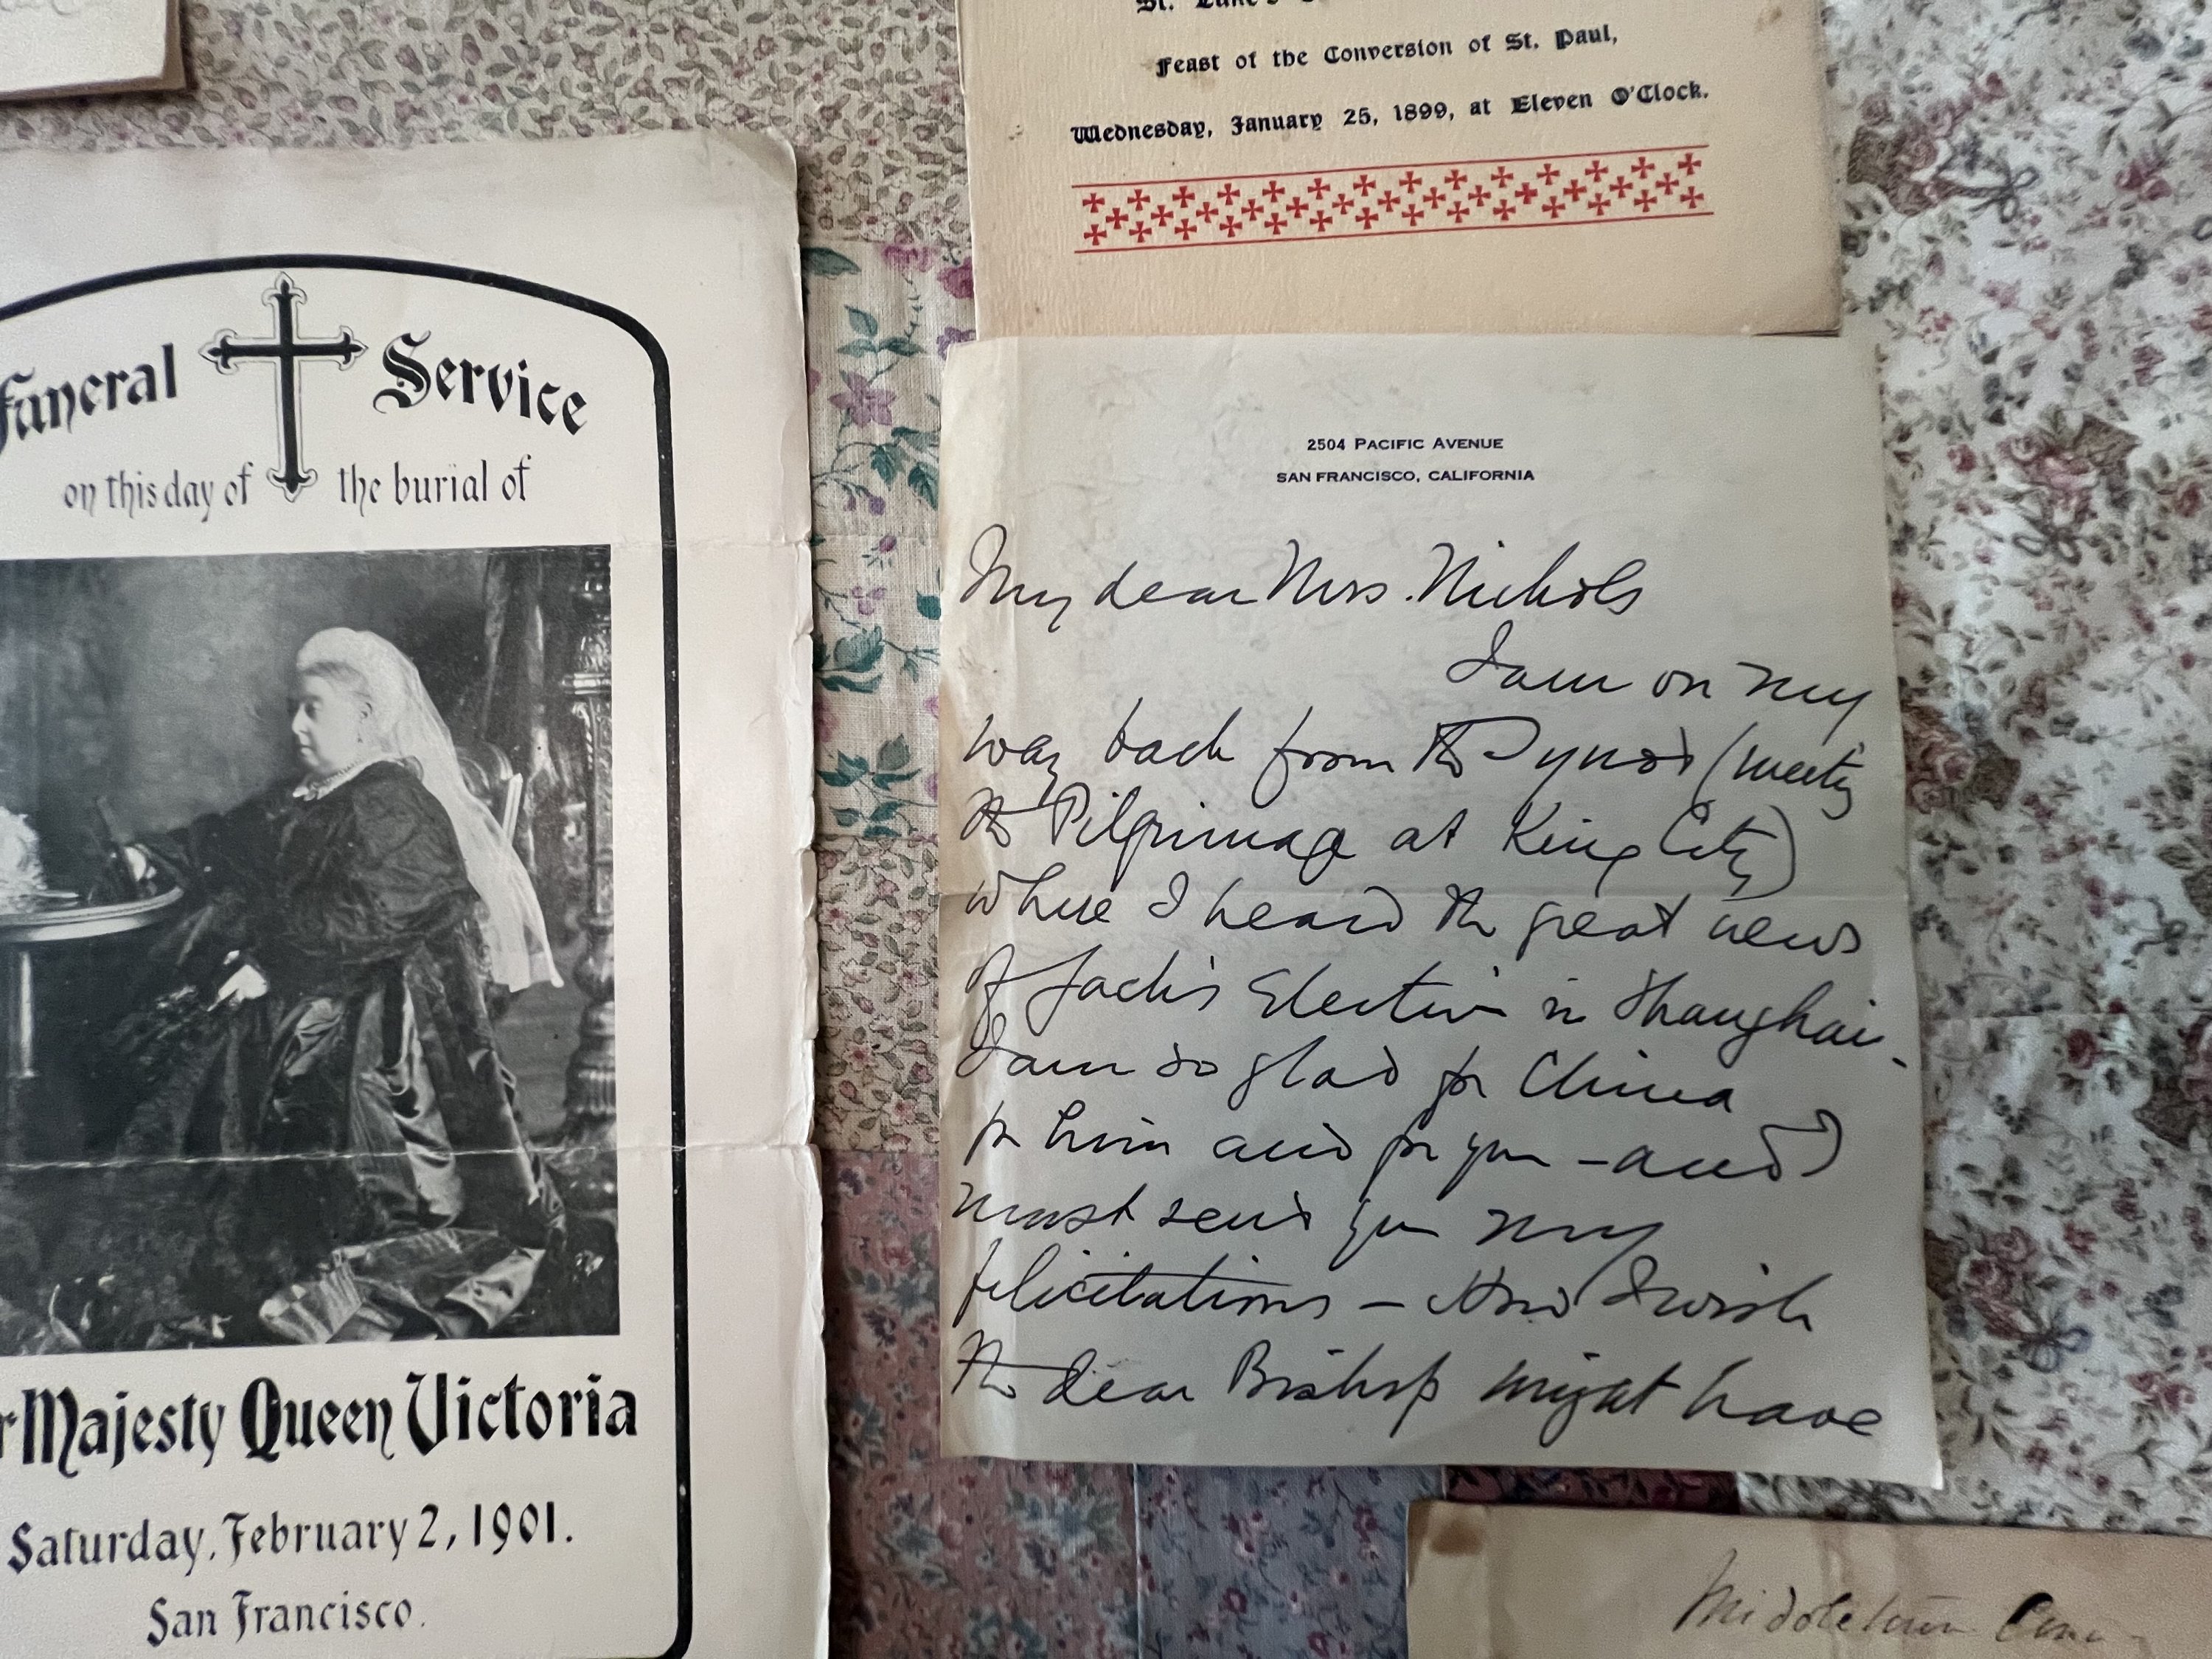 Funeral Service
on this day of the burial of
Majesty Queen Victoria
Saturday, February 2, 1901.
San Francisco.
St. Luke's
Feast of the Conversion of St. Paul,
Wednesday, January 25, 1899, at Eleven O'Clock.
2504 PACIFIC AVENUE
SAN FRANCISCO, CALIFORNIA
My dear Mrs. Nichols
I am on my
way back from the Synod (meeting
the Pilgrimage at King City)
where I heard the great news
of Jack's Election in Shanghai.
I am so glad for China
for him and for you - and I
must send you my
felicitations - How I wish
the dear Bishop might have
Middletown Conn